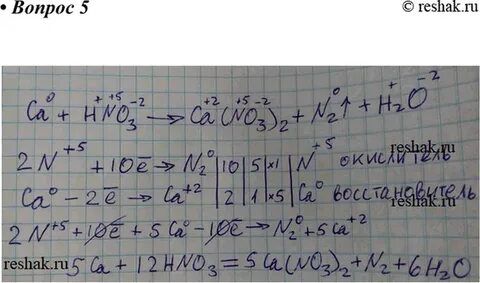 • Вопрос 5
© reshak.ru
Ca⁰ + H⁺N⁺⁵O₃⁻² → Ca⁺²(N⁺⁵O₃⁻²)₂ + N₂⁰↑ + H₂⁺O⁻²
reshak.ru
2N⁺⁵ + 10ē → N₂⁰ | 10 | 5 | ×1 | N⁺⁵ окислитель
Ca⁰ – 2ē → Ca⁺² | 2 | 1 | ×5 | Ca⁰ восстановитель
2N⁺⁵ + 10ē + 5Ca⁰ – 10ē → N₂⁰ + 5Ca⁺²
reshak.ru
5Ca + 12HNO₃ = 5Ca(NO₃)₂ + N₂ + 6H₂O
reshak.ru